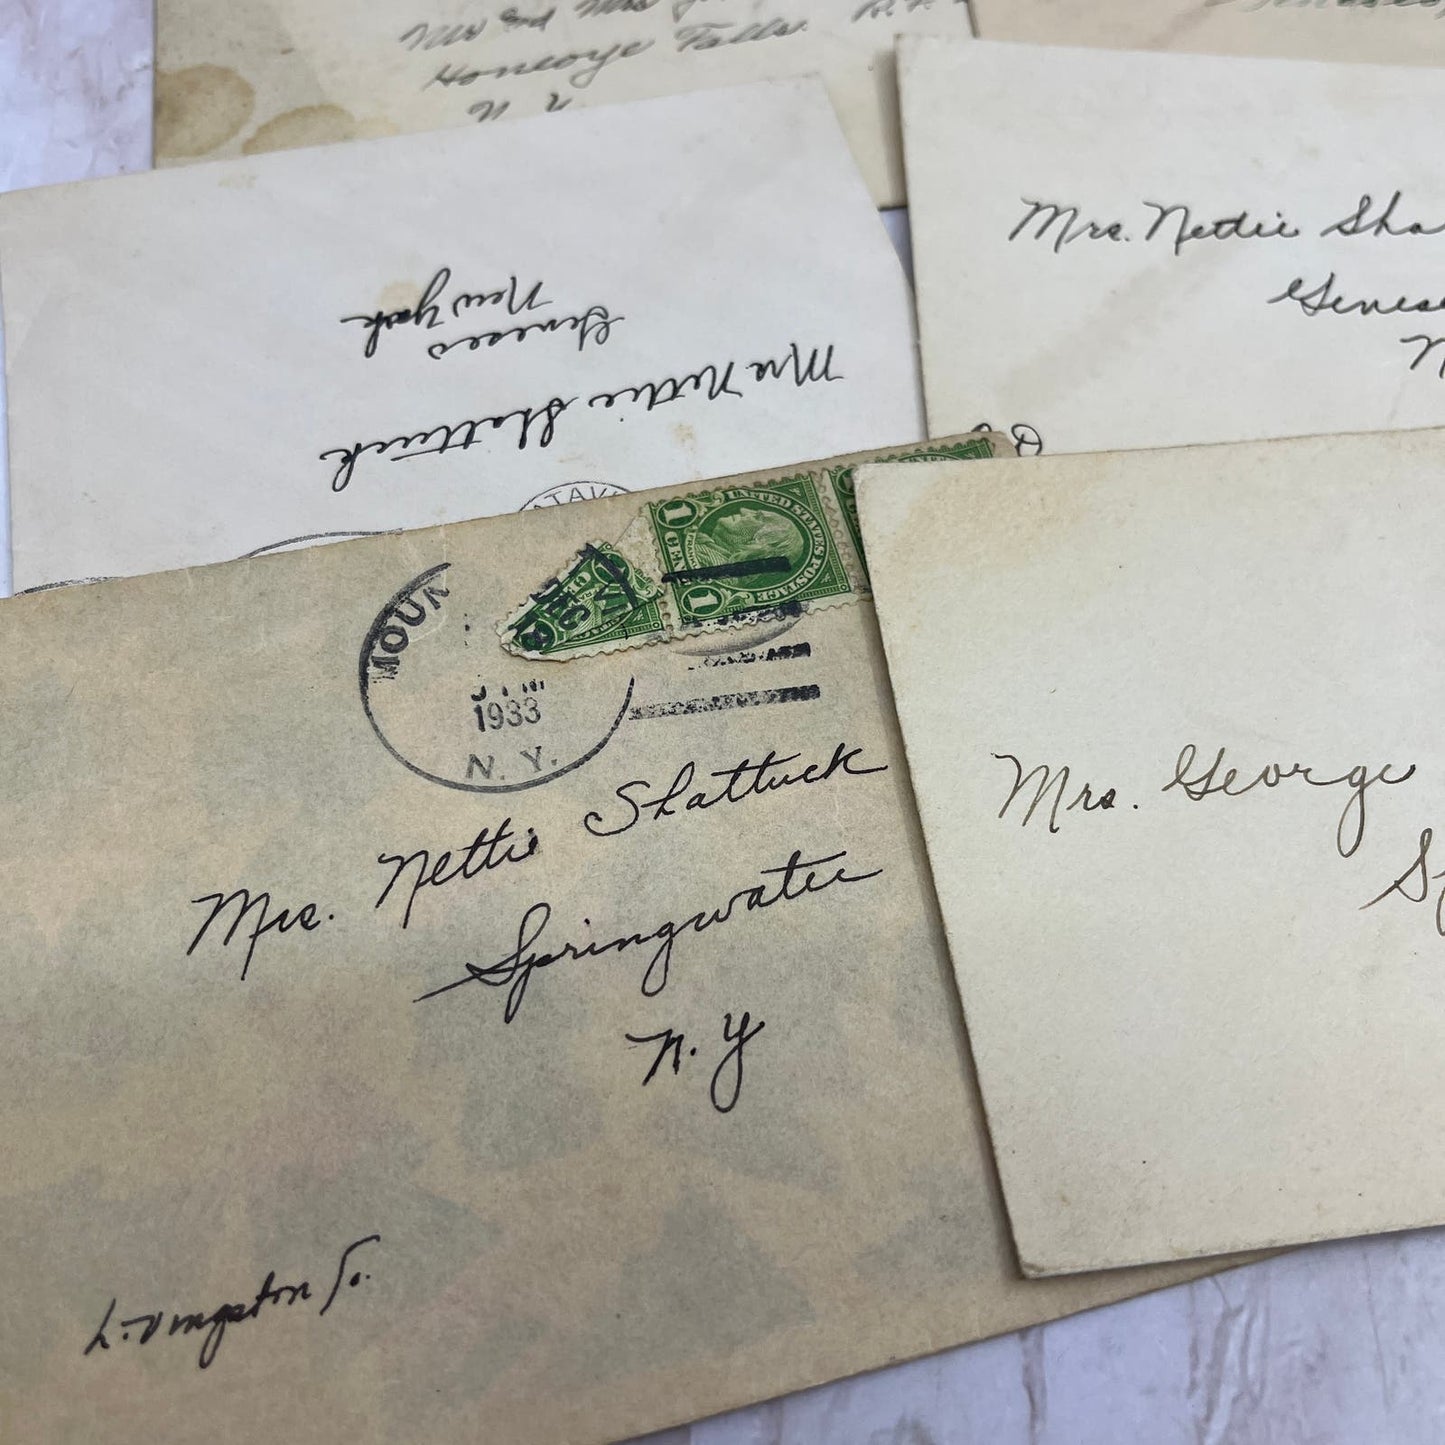 Mr and Mrs
Honeoye Falls.
N Y
Mrs. Nettie Sha
Genese
N
Mrs Nettie Shattuck
Geneseo
New York
ATAV
1 CEN
UNITED STATES POSTAGE
1
MOUN
1933
N. Y.
Mrs. Nettie Shattuck
Springwater
N. Y
Livingston Co.
Mrs. George
Sp